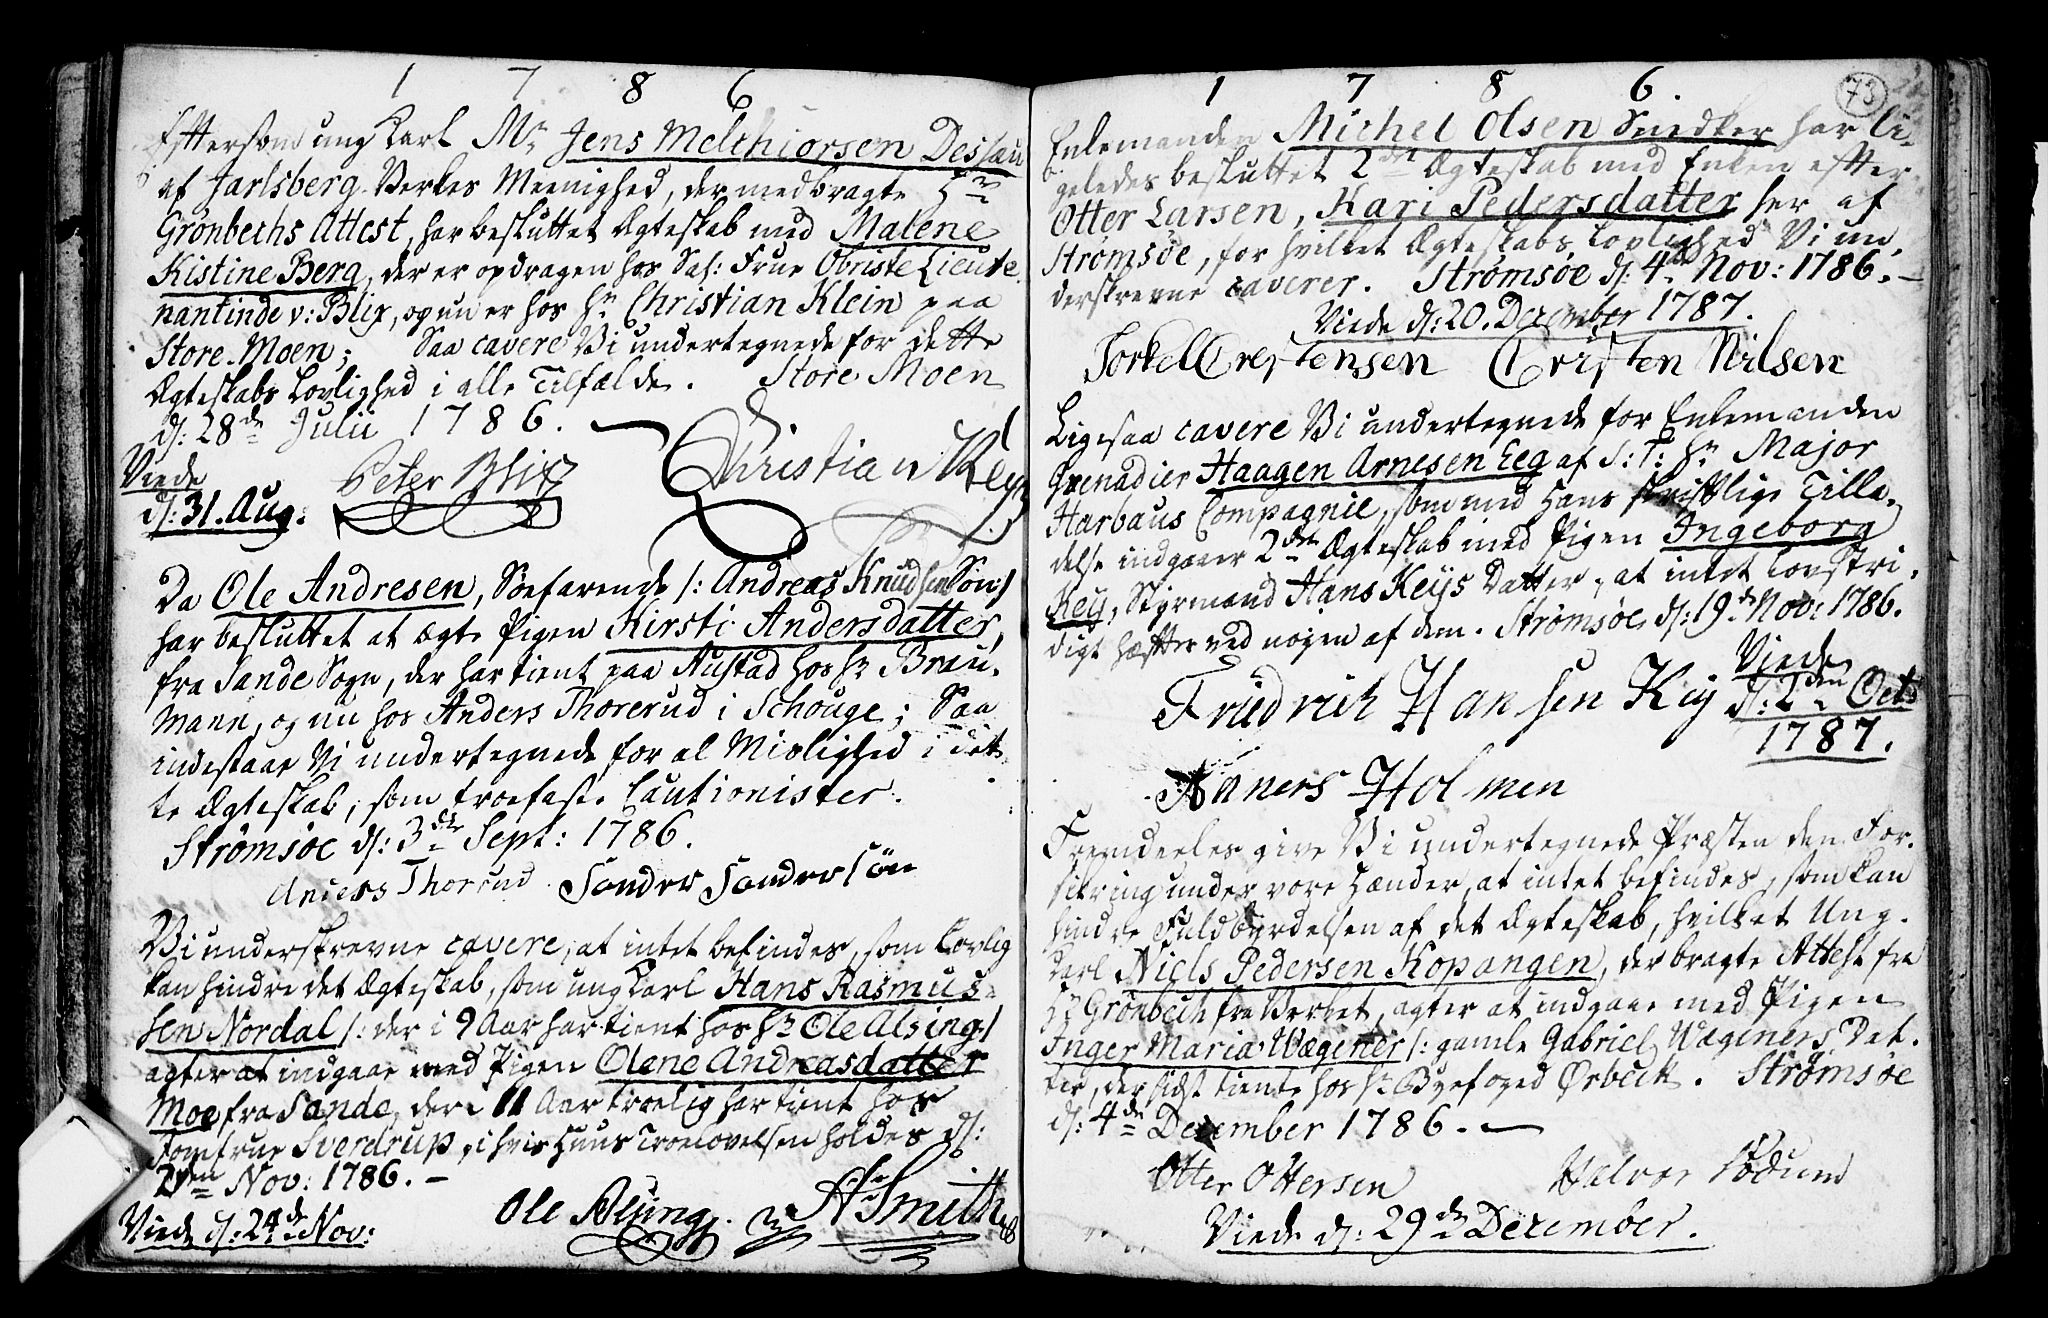 1 7 8 6
Eftersom ung Karl Mr Jens Melchiorsen Dessau
af Jarlsberg Verkes Meenighed, der medbragte Hr
Grønbechs Attest, har besluttet Ægteskab med Malene
Kistine Berg, der er opdragen hos Sal: Frue Obriste Lieute
nantinde v: Blix, og nu er hos Hr Christian Klein paa
Store-Moen; Saa cavere Vi undertegnede for dette
Ægteskabs Lovlighed i alle Tilfælde. Store Moen
d: 28de Julii 1786.
Peter Blix Christian Kley
Viede
d: 31. Aug:
Da Ole Andresen, Søefarende /: Andreas Knudsens Søn:/
har besluttet at ægte Pigen Kirsti Andersdatter,
fra Sande Sogn, der har tient paa Austad hos Hr Brau-
mann, og nu hos Anders Thorerud i Schouge; Saa
indestaar Vi undertegnede for al Mislighed i det-
te Ægteskab, som troefaste Cautionister.
Strømsøe d: 3de Sept: 1786.
Aniers Thorrud Sonder Sondersøn
Vi underskrevne cavere, at intet befindes, som Lovlig
kan hindre det Ægteskab, som ung Karl Hans Rasmus-
sen Nordal /: der i 9 Aar har tient hos Hr Ole Alsing:/
agter at indgaae med Pigen Olene Andreasdatter
Moe fra Sande, der i 11 Aar troelig har tient hos
Jomfrue Sverdrup, i hvis Huus Troelovelsen holdes d:
2den Nov: 1786.
Ole Alsing. A Smith
Viede d: 24de Nov:
1 7 8 6.
73
Enkemanden Michel Olsen Snedker har li-
geledes besluttet 2det Ægteskab med Enken efter
Otter Larsen, Kari Pedersdatter her af
Strømsøe, for hvilket Ægteskabs Lovlighed Vi un-
derskrevne caverer. Strømsøe d: 4de Nov: 1786.
Viede d: 20. December 1787.
Torkel Crestensen Cristen Nilsen
Ligesaa cavere Vi undertegnede for Enkemanden
Grenadier Haagen Arnesen Eeg af S: T: Hr Major
Harbaus Compagnie, som med Hans skriftlige Tilla-
delse indgaaer 2det Ægteskab med Pigen Ingeborg
Key, Styrmand Hans Keys Datter, at intet Lovstri-
digt hæfter ved nogen af dem. Strømsøe d: 19de Nov: 1786.
Viede
d: 2den Oct
1787.
Friedrich Hansen Key
Aners Holmen
Fremdeeles give Vi undertegnede Præsten den For-
sikring under vore Hænder, at intet befindes, som kan
hindre Fuldbyrdelsen af det Ægteskab, hvilket Ung-
Karl Niels Pedersen Kopangen, der bragte Attest fra
Hr Grønbech fra Verket, agter at indgaae med Pigen
Inger Maria Wægener /: gamle Gabriel Wægeners Dat-
ter, der sidst tiente hos Hr Byefoged Ørbeck. Strømsøe
d: 4de December 1786.
Otter Ottersen Halvor
Viede d: 29de December.